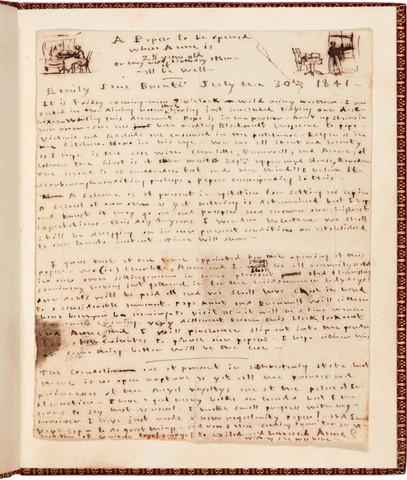 A Paper to be opened
when Anne is
25 years old
or my next birthday after
if
all be well
Emily Jane Brontë July the 30th 1841.
It is Friday evening near 9 o'clock wild rainy weather I am
seated in the dining room having just concluded tidying our desk
boxes writing this document Papa is in the parlour. Aunt up stairs in
her room she has been reading Blackwood's Magazine to papa
Victoria and Adelaide are ensconced in the peat-house Keeper is in
the kitchen Hero in his cage We are all stout and hearty
as I hope is the case with Charlotte, Branwell, and Anne, of
whom the first is at John White Esq upperwood House, Rawden
the second is at Luddenden foot and the third is I beleive at
Scarborough enditing perhaps a paper corresponding to this
A Scheme is at present in agitation for setting us up in
a school of our own as yet nothing is determined but I hope
and trust it may go on and prosper and answer our highest
expectations. This day 4 years I wonder whether we shall
still be dragging on in our present condition or established
to our heart's content Time will show
I guess that at the time appointed for the opening of this
paper we (i.e.) Charlotte, Anne and I shall be all merrily seated
in our own sitting-room in some pleasant and flourishing
seminary having just gathered in for the midsummer holydays
our debts will be paid off and we shall have cash in hand
to a considerable amount. Papa Aunt and Branwell will either
have been or be coming to visit us it will be a fine warm
summery evening very different from this bleak look-out
Anne and I will perchance slip out into the garden
a few minutes to peruse our papers. I hope either this or
something better will be the case
The Gondalians are at present in a threatening state but
there is no open rupture as yet all the princes and
princesses of the royal royaltys are at the palace of In-
struction I have a good many books on hands but I am
sorry to say that as usual I make small progress with any
however I have just made a new regularity paper! and I mean
verb sap to do great things and now I close sending from far an
exhortation of courage courage! to exiled and harassed Anne
wishing she was here